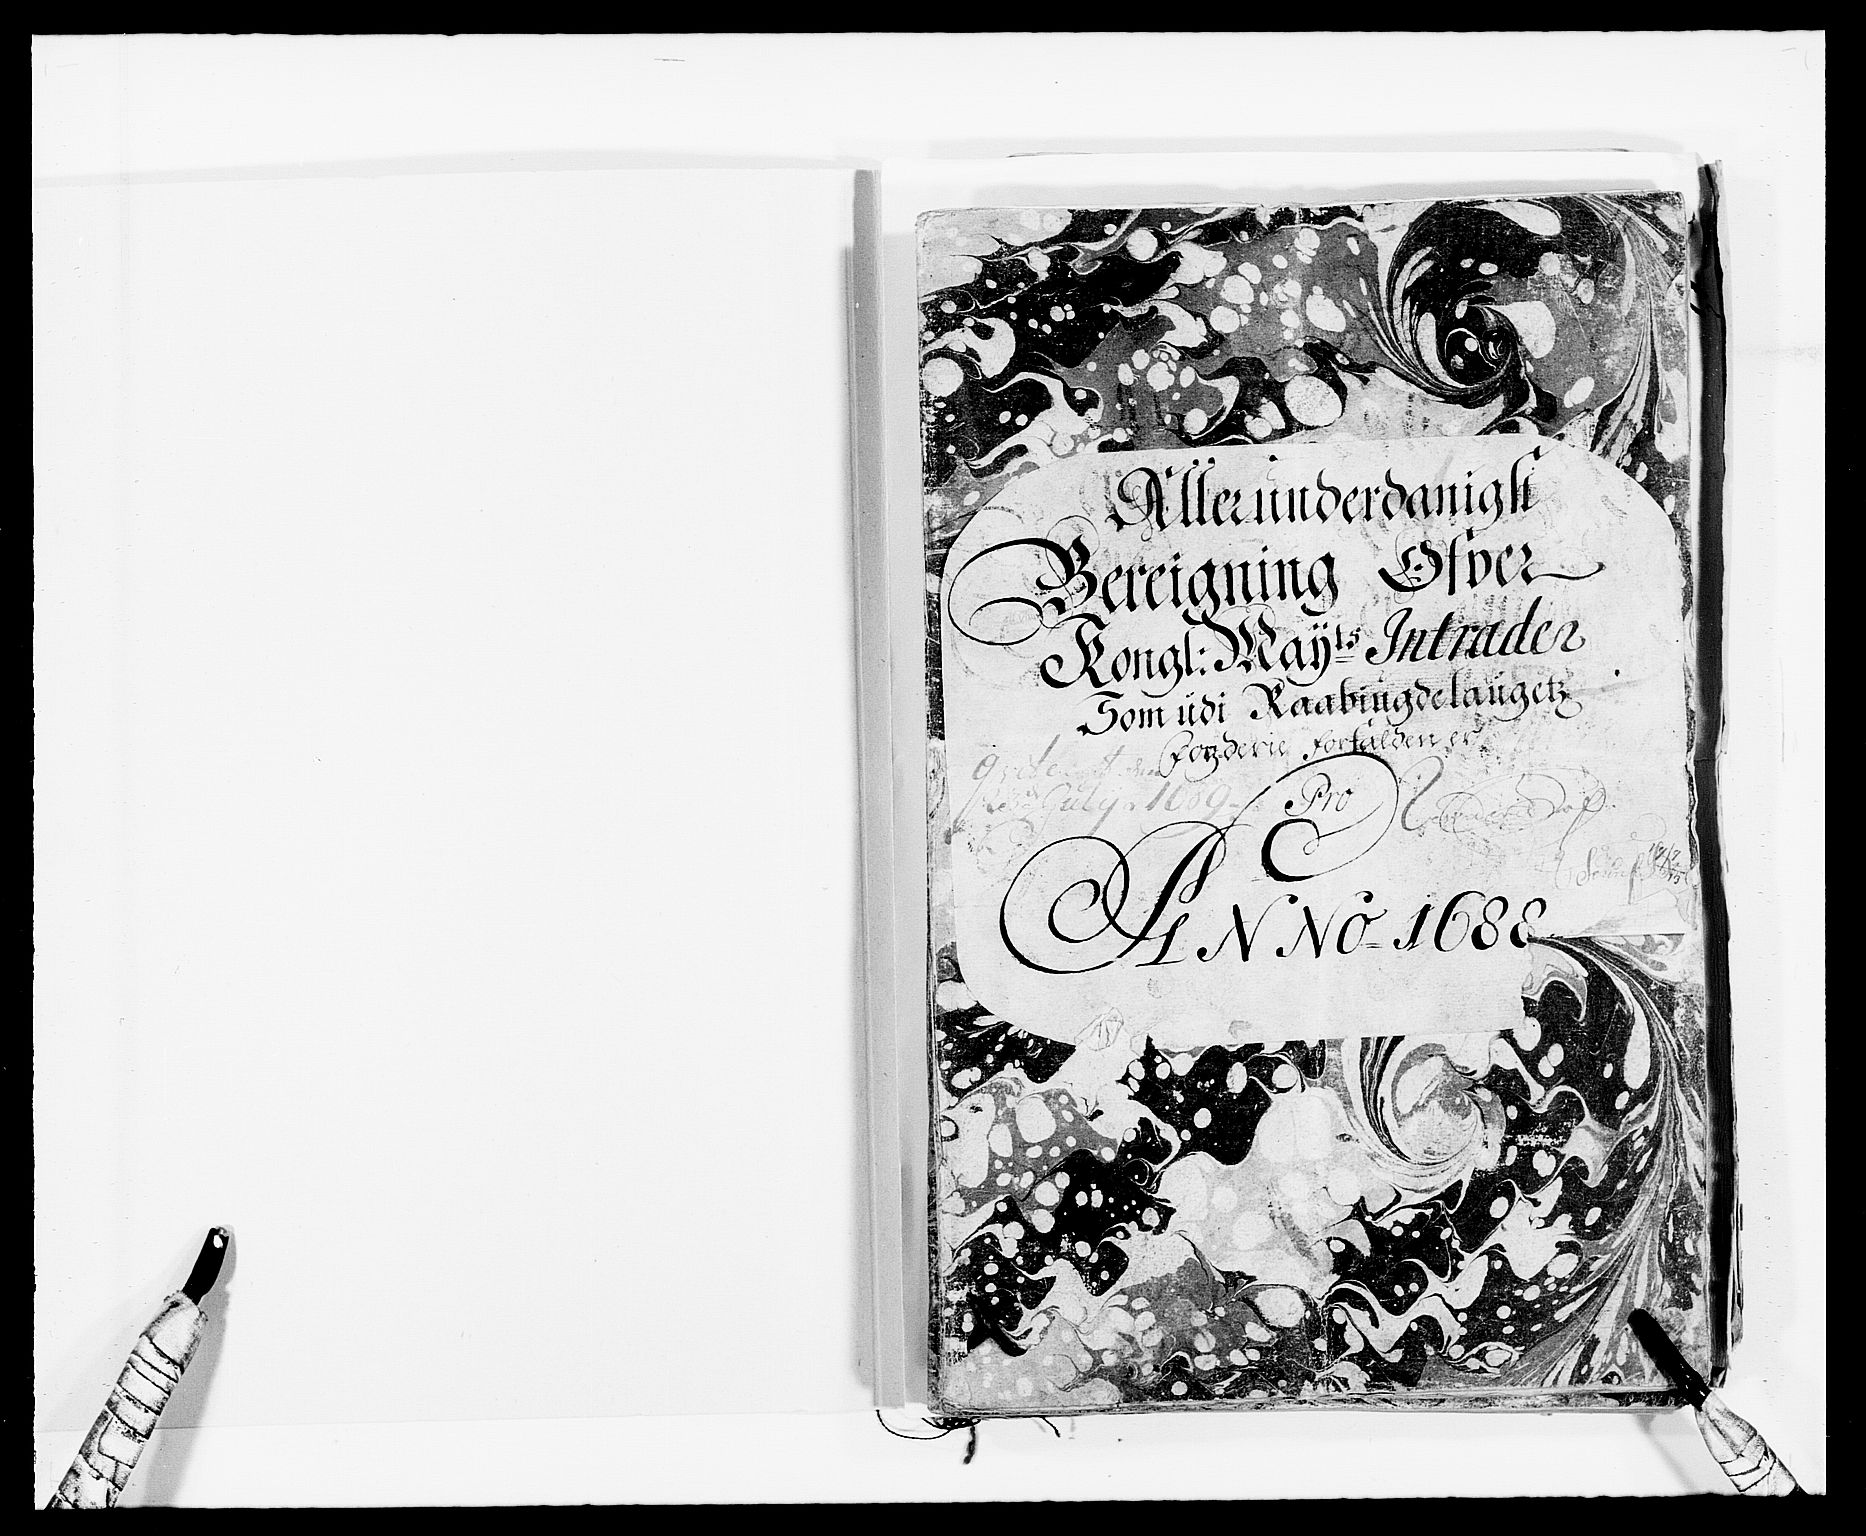 Allerunderdanigst
Bereigning Øfver
Kongl: Maÿts Intrader
Som udi Raabiugdelaugetz
fogderie forfalden er
July 1689
Pro
ANNO 1688